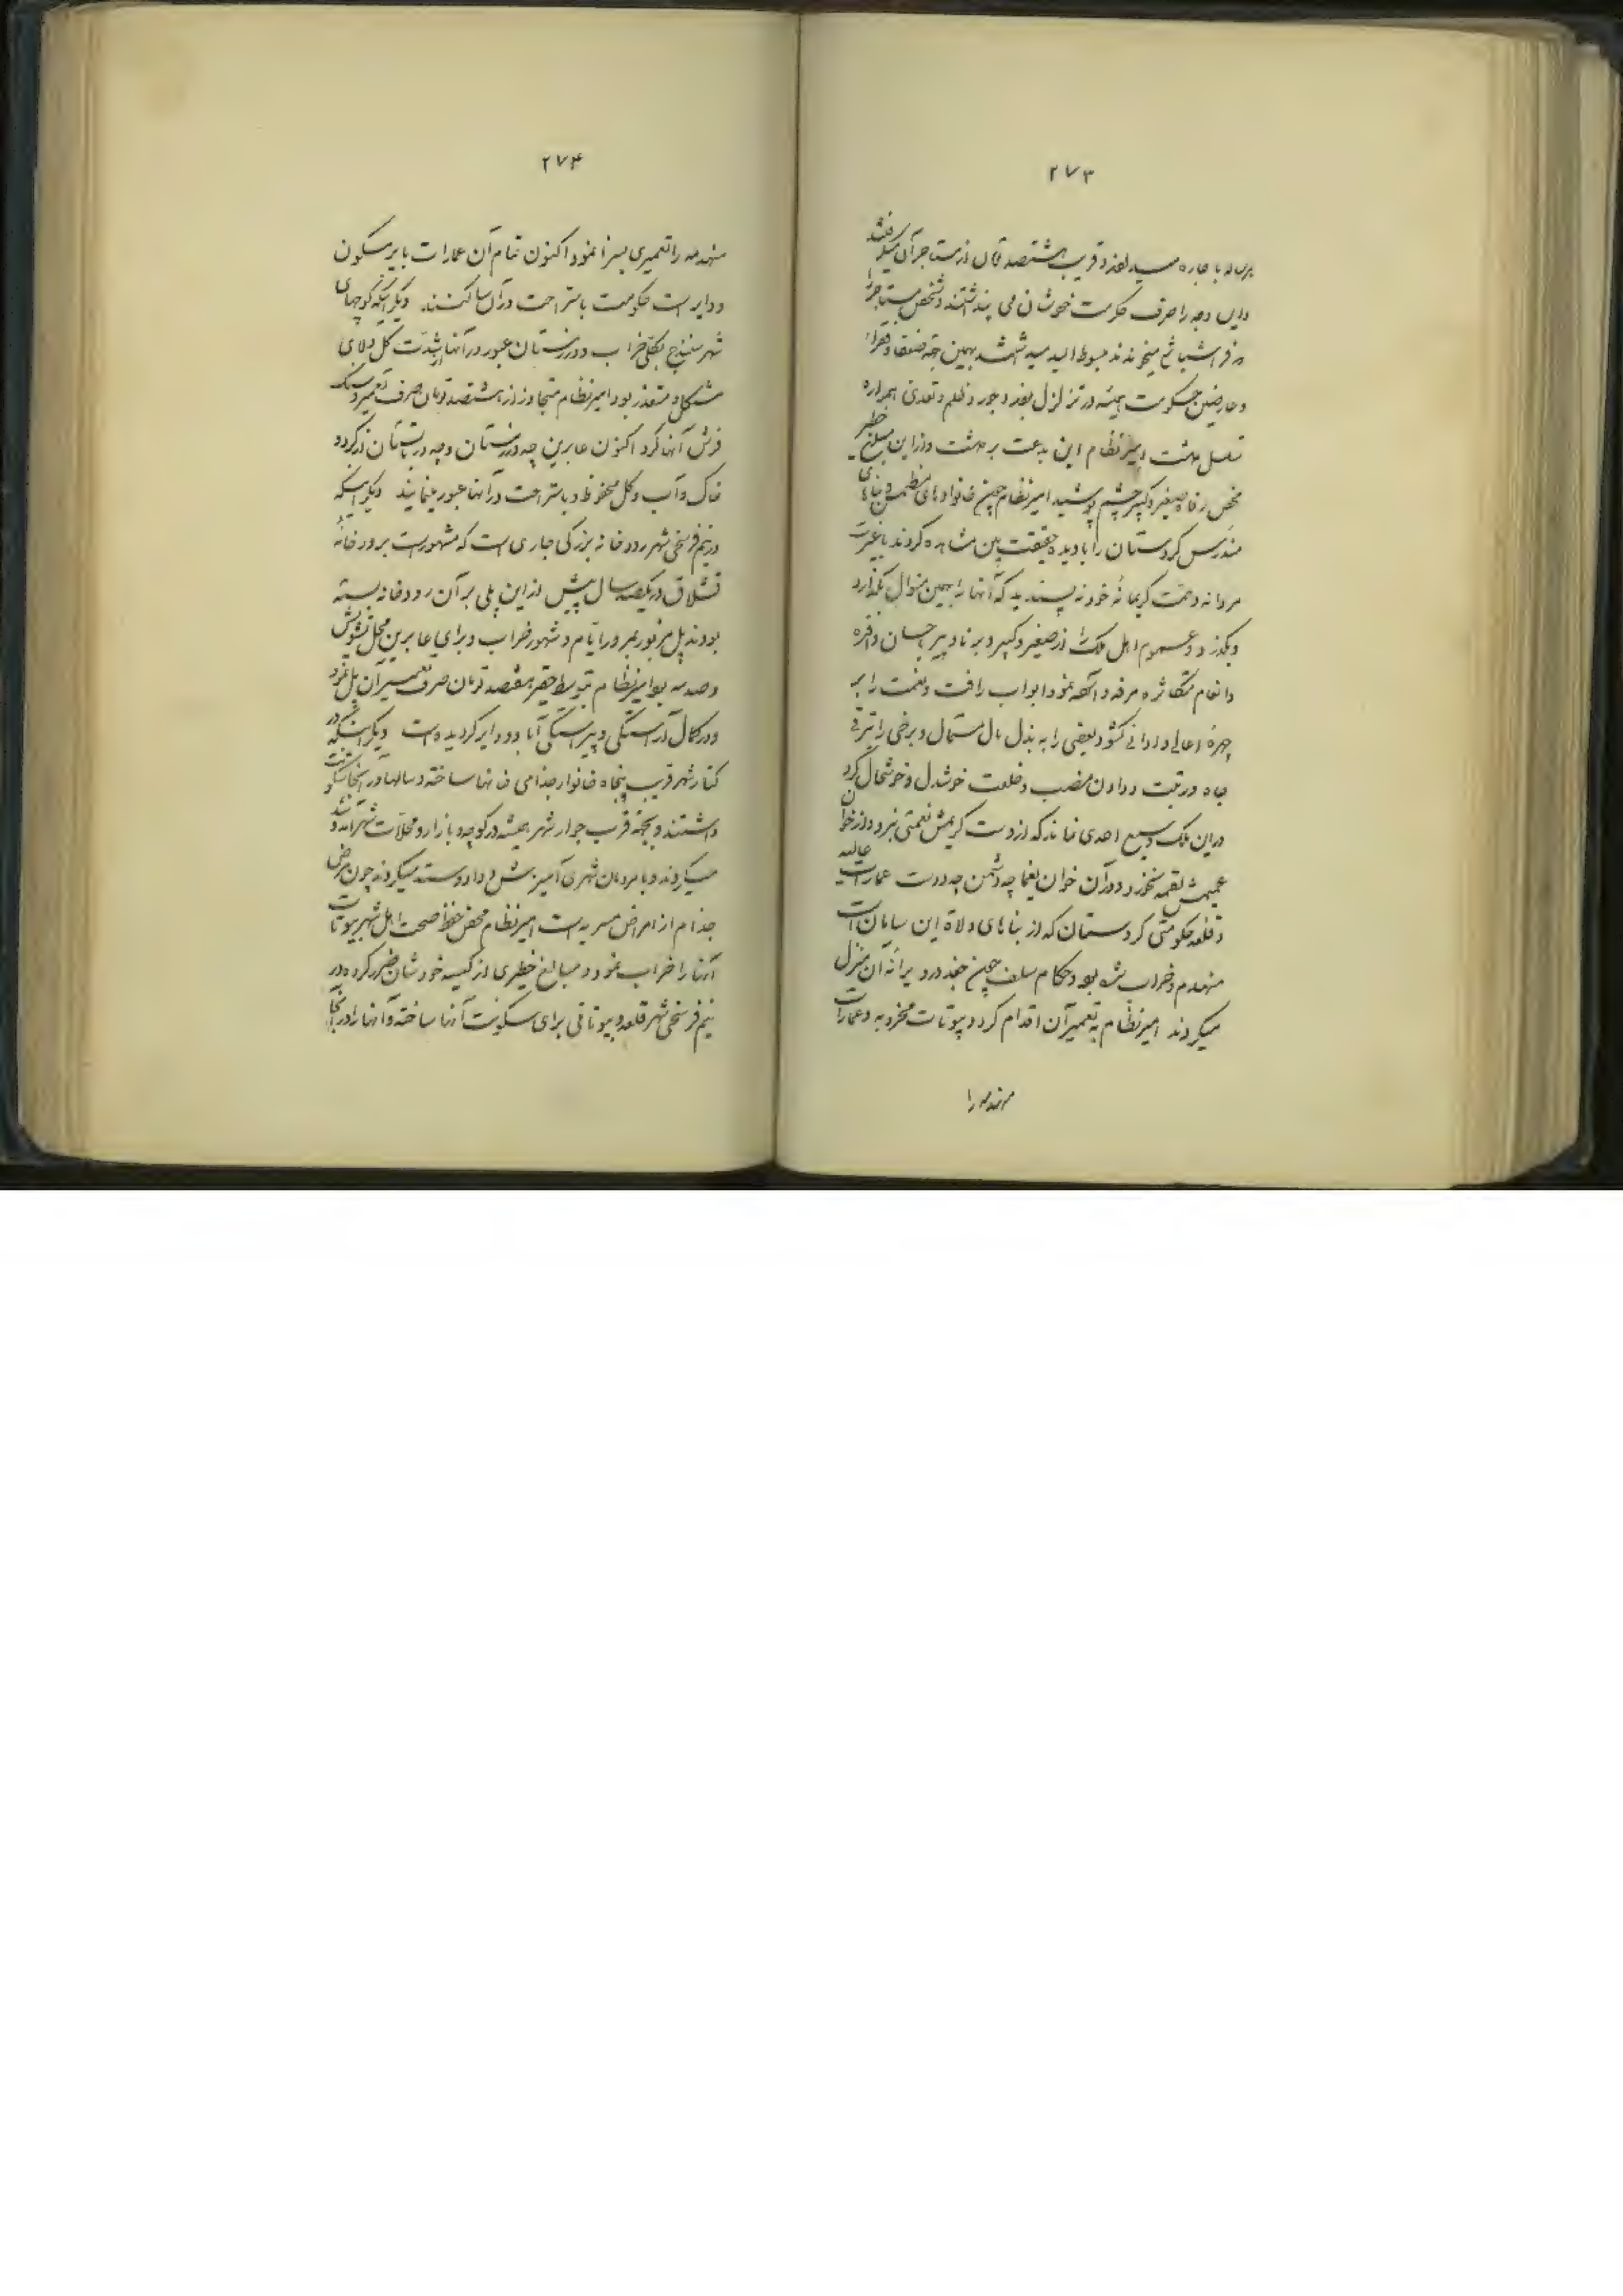 ۲۷۳
هرساله باجاره میدادند و قریب هشتصد تومان از مستأجر آن میگرفتند
و این وجه را صرف حکومت خودشان می پنداشتند و شخص مستأجر را
بهمین جهة ضعفا و فقراء
و عارضین حکومت همیشه در تزلزل بودند و جور و ظلم و تعدی همواره
معمول داشت امیرنظام این بدعت برداشت و از این مبلغ خطیر
محض رفاه صغیر و کبیر چشم پوشید امیرنظام چون خانوادهای منطمس و بناهای
مندرس کردستان را با دیده حقیقت بین مشاهده کردند با غیرت
مردانه و همت کریمانه خود نه پسندید که آنها را بهمین منوال بگذارد
و بگذرد و عموم اهل ملک را از صغیر و کبیر و برنا و پیر باحسان وافره
و انعام متکاثره مرفه و آسوده نمود ابواب رأفت و نعمت را بر
چهره اعالی و ادانی گشود بعضی را به بذل مال مستمال و برخی را بترقی
جاه و رتبت و دادن منصب و خلعت خوشدل و خوشحال کرد
در این ملک وسیع احدی نماند که از دست کریمش نعمتی نبرد و از خوان
عمیمش لقمه نخورد و در آن خوان یغما چه دشمن چه دوست عمارات عالیه
و قلعه حکومتی کردستان که از بناهای ولاة این سامان است
منهدم و خراب شده بود و حکام سلف چون جغد در ویرانه آن منزل
میکردند امیرنظام به تعمیر آن اقدام کرد و بیوتات مخروبه و عمارات
منهدمه را
۲۷۴
منهدمه را تعمیری بسزا نمود اکنون تمام آن عمارات بایر مسکون
و دایر است حکومت باستراحت در آن ساکنند. دیگر اینکه کوچهای
شهر سنندج بکلی خراب و در زمستان عبور در آنها از شدت گل و لای
مشکل و متعذر بود امیرنظام متجاوز از هشتصد تومان صرف تعمیر و سنگ
فرش آنها کرد اکنون عابرین چه در زمستان و چه در تابستان از گرد و
خاک و آب و گل محفوظ و باستراحت در آنها عبور مینمایند دیگر اینکه
در نیم فرسخی شهر رودخانه بزرگی جاری است که مشهور است برودخانهٔ
قشلاق در یکصد سال پیش از این پلی بر آن رودخانه بسته
بودند پل مزبور بمرور ایام و شهور خراب و برای عابرین محل تشویش
و صدمه بود امیرنظام بتوسط حقیر هفتصد تومان صرف تعمیر آن پل نمود
و در کمال آراستگی و پیراستگی آباد و دایر گردیده است دیگر اینکه در
کنار شهر قریب پنجاه خانوار جذامی خانها ساخته و سالها در آنجا سکونت
داشتند و بجهة قرب جوار شهر همیشه در کوچه و بازار و محلات شهر آمد و شد
میکردند و با مردمان شهری آمیزش و داد و ستد میکردند چون مرض
جذام از امراض مسریه است امیرنظام محض حفظ صحت اهل شهر بیوتات
آنها را خراب نمود و مبالغ خطیری از کیسه خودشان ضرر کرده در
نیم فرسخی شهر قلعه و بیوتاتی برای سکونت آنها ساخته و آنها را در آنجا